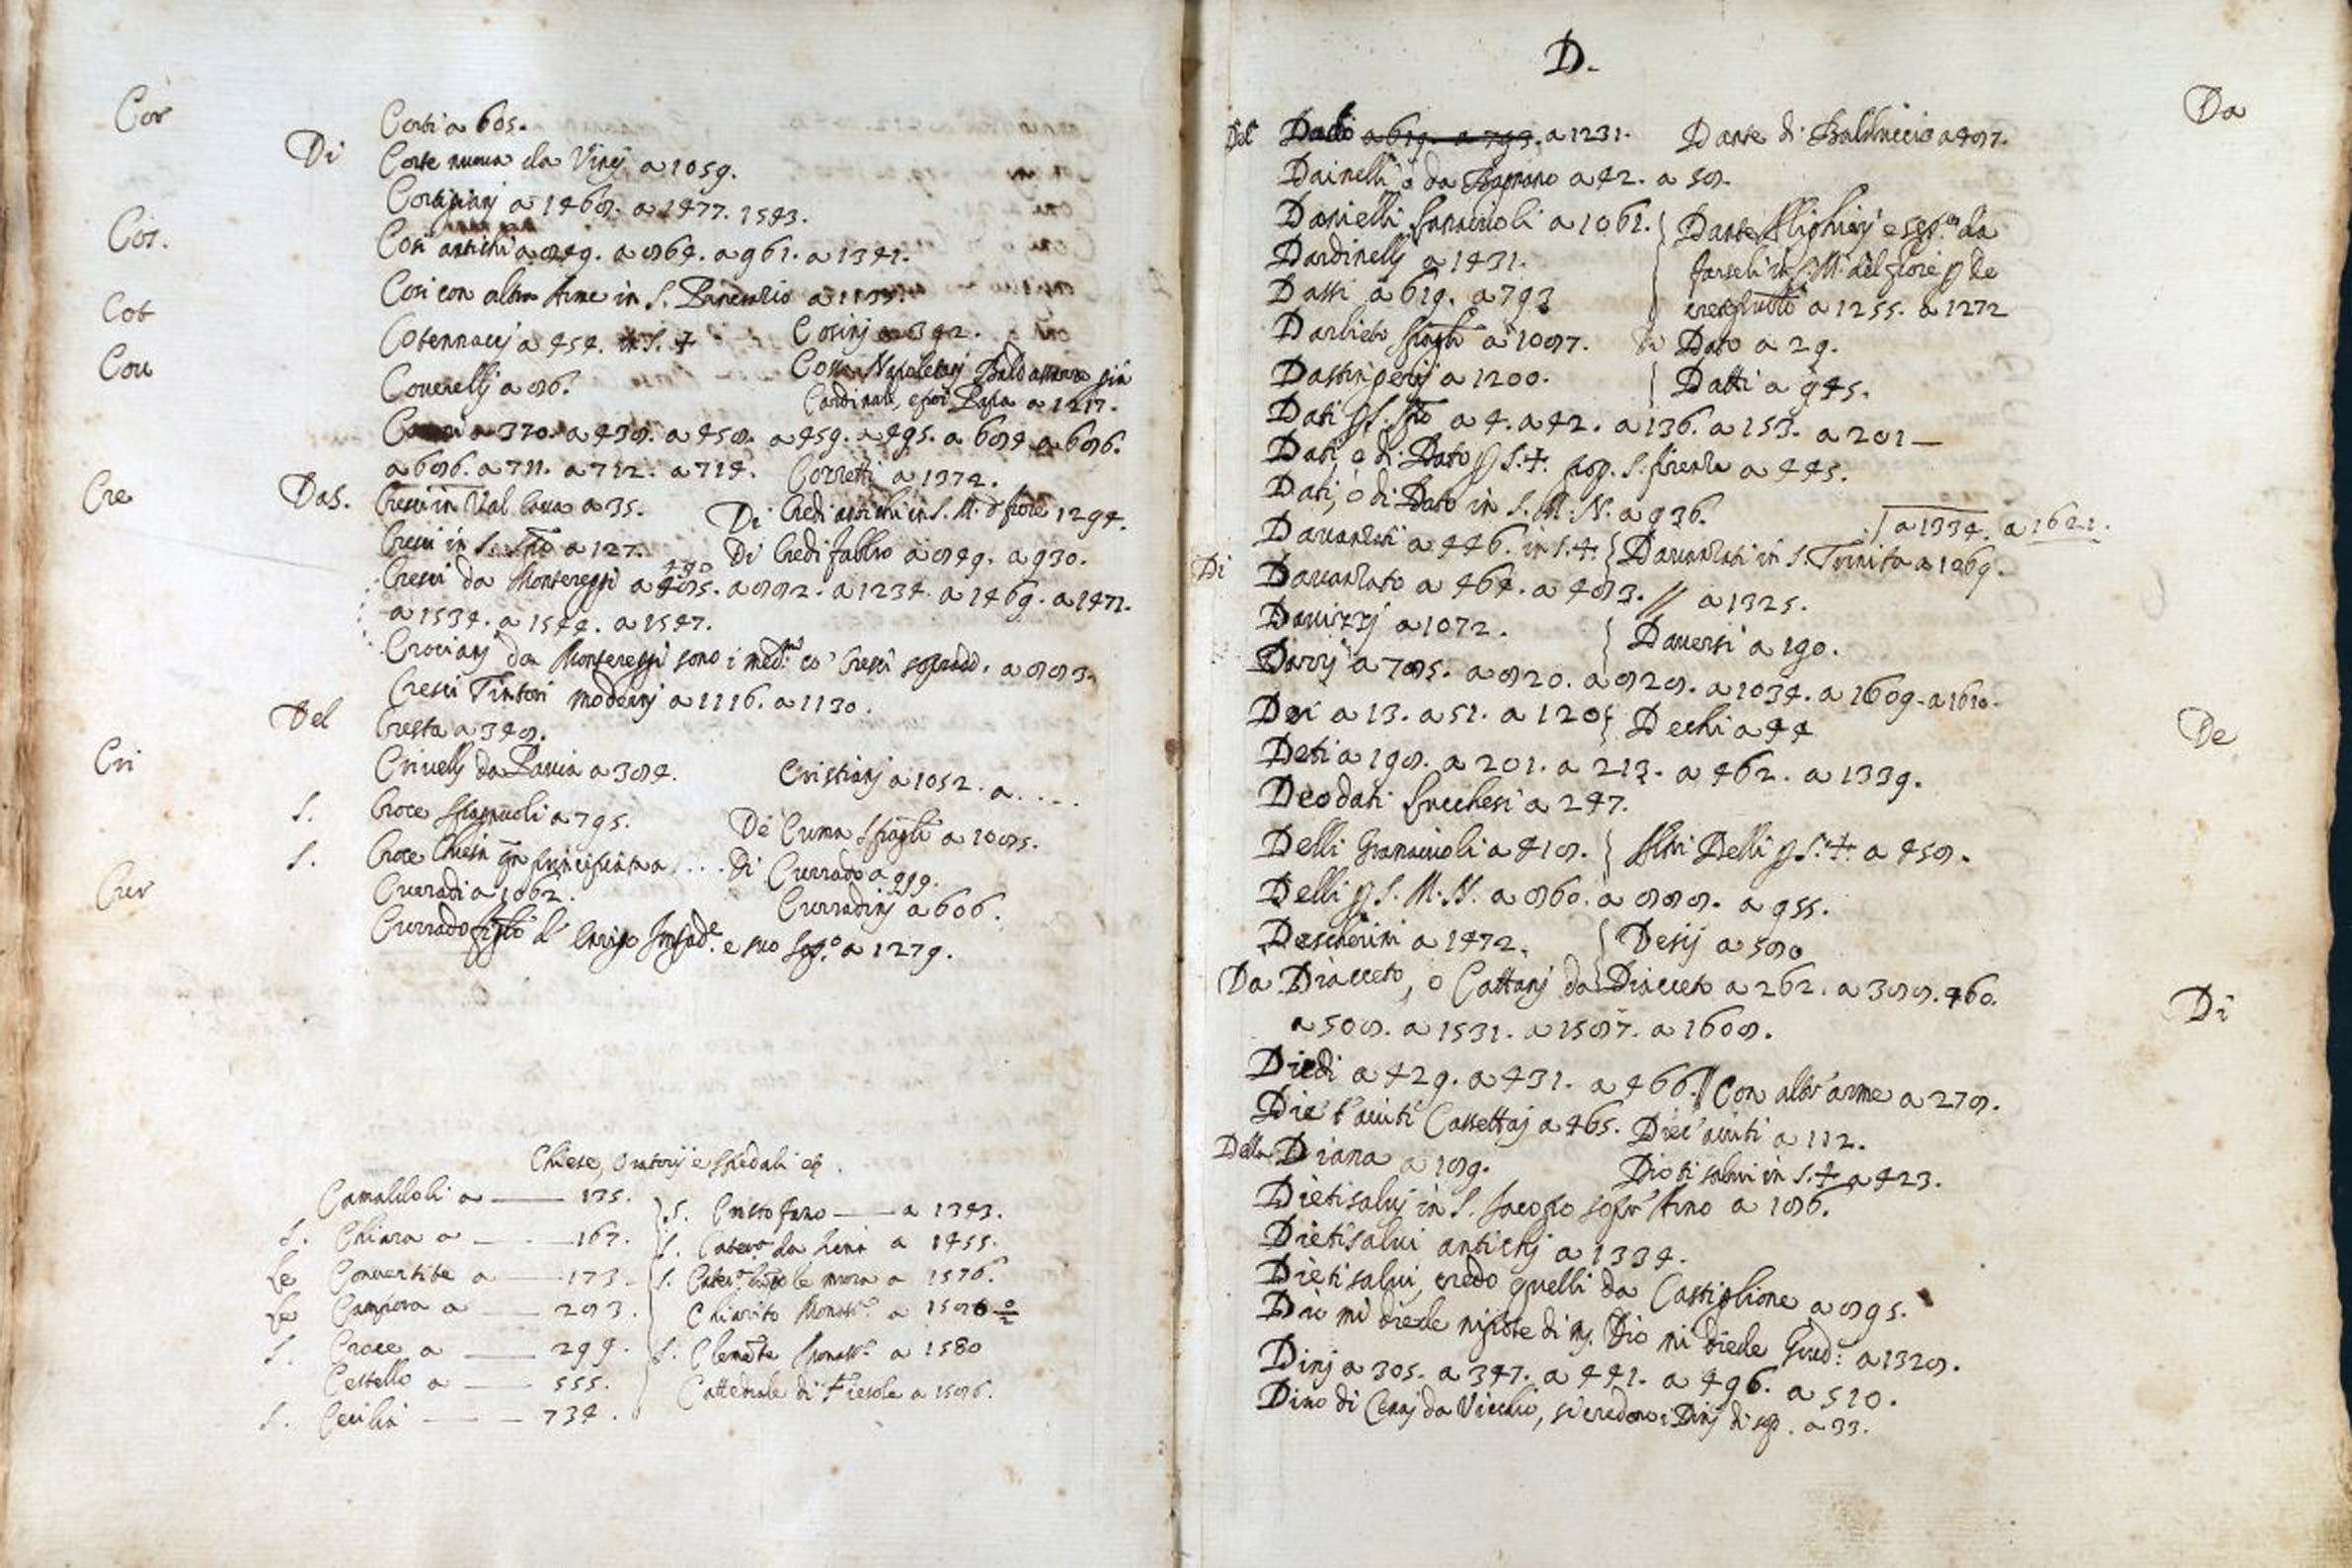 Cor
Corbi a 605.
Di Corte nuova da Vinci a 1059.
Cortigiani a 1468. a 1477. 1543.
Cos.
Cosi antichi a 849. a 864. a 961. a 1341.
Cosi con altra Arme in S. Pancrazio a 1135.
Cot
Cotennacci a 454. in S. +
Cosinj a 342.
Cou
Couerellj a 86.
Cossa Napoletanj Baldassarre già
Cardinale, e poi Papa a 1217.
a 370. a 438. a 458. a 459. a 495. a 684. a 686.
a 686. a 711. a 712. a 714. Corretti a 1372.
Cre
Das. Cresci in Val a 35.
Di Credi antichi in S. M. d fiore 1294.
Cresci in S. Spto a 127.
Di Credi fabbro a 849. a 930.
Cresci da Montereggi a 485. a 882. a 1234. a 1469. a 1471.
490
a 1534. a 1544. a 1547.
Crocianj da Montereggi sono i med.mi co' Cresci sopradd. a 883.
Cresci Tintori modernj a 1116. a 1130.
Del Cresta a 348.
Cri
Criuellj da Pauia a 384.
Cristianj a 1052. a....
S. Croce Spagnuoli a 795.
De Cuma Spagli a 1085.
S. Croce Chiesa principiata a ...
Di Currado a 999.
Cur
Curradi a 1062.
Curradinj a 606.
Currado figlio d' Enrigo Impad.e e suo Sep.o a 1279.
Chiese, Oratorj e Spedali
Camaldoli a — 135.
S. Chiara a — 167.
Le Conuertite a — 173.
Le Campora a — 283.
S. Croce a — 299.
Cestello a — 555.
S. Cecilia — 734.
S. Cristofano — a 1343.
S. Cater.a da Siena a 1455.
S. Cater.a le mura a 1576.
Chiarito Monast.o a 1586
S. Clemente Monast.o a 1580
Cattedrale di Fiesole a 1586.
D.
Da
Del Dado a 619. a 793. a 1231.
Dante di Balduccio a 487.
Dainelli o da Bagnano a 42. a 58.
Danielli Lanaiuoli a 1061.
Dante Alighierj e sep.o da
farseli in S. M. del fiore p le
a 1255. a 1272
Dardinellj a 1431.
Dassi a 619. a 793
Darbieto Spagli a 1087.
Dato a 29.
Dastingerij a 1200.
Datti a 945.
Dati p S. Spto a 4. a 42. a 136. a 153. a 201 —
Dati, o di Dato p S. +. pop. S. firenze a 445.
Dati, o di Dato in S. M. N. a 936.
a 1334. a 1621.
Dauanzati a 446. in S. +. Dauanzati in S. Trinita a 1269.
Di Dauanzato a 464. a 483. // a 1325.
Dauizzj a 1072.
Dauersi a 190.
a 785. a 820. a 828. a 1034. a 1609. a 1610.
De
Dei a 13. a 51. a 120
Dechi a 44
Deti a 198. a 201. a 213. a 462. a 1339.
Deodati Lucchesi a 247.
Delli Granaiuoli a 418. Altri Delli p S. +. a 458.
Delli p S. M. N. a 860. a 888. a 955.
Descherini a 1472.
Desij a 580
Di
Da Diacceto, o Cattanj da Diacceto a 262. a 388. 460.
a 508. a 1531. a 1587. a 1608.
Diedi a 429. a 431. a 466. // Con altr' arme a 278.
Die t'aiuti Cassettaj a 465. Diec' aiuti a 112.
Della Diana a 189.
Dio ti salui in S. + a 423.
Dietisaluj in S. Jacopo sopr' Arno a 186.
Dietisalui antichj a 1334.
Dietisalui, credo quelli da Castiglione a 895.
Dio mi diede nipote di M. Dio mi diede Giud: a 1328.
Dinj a 305. a 347. a 441. a 496. a 510.
Dino di Cennj da Vicchio, si credono i Dinj di sop. a 33.